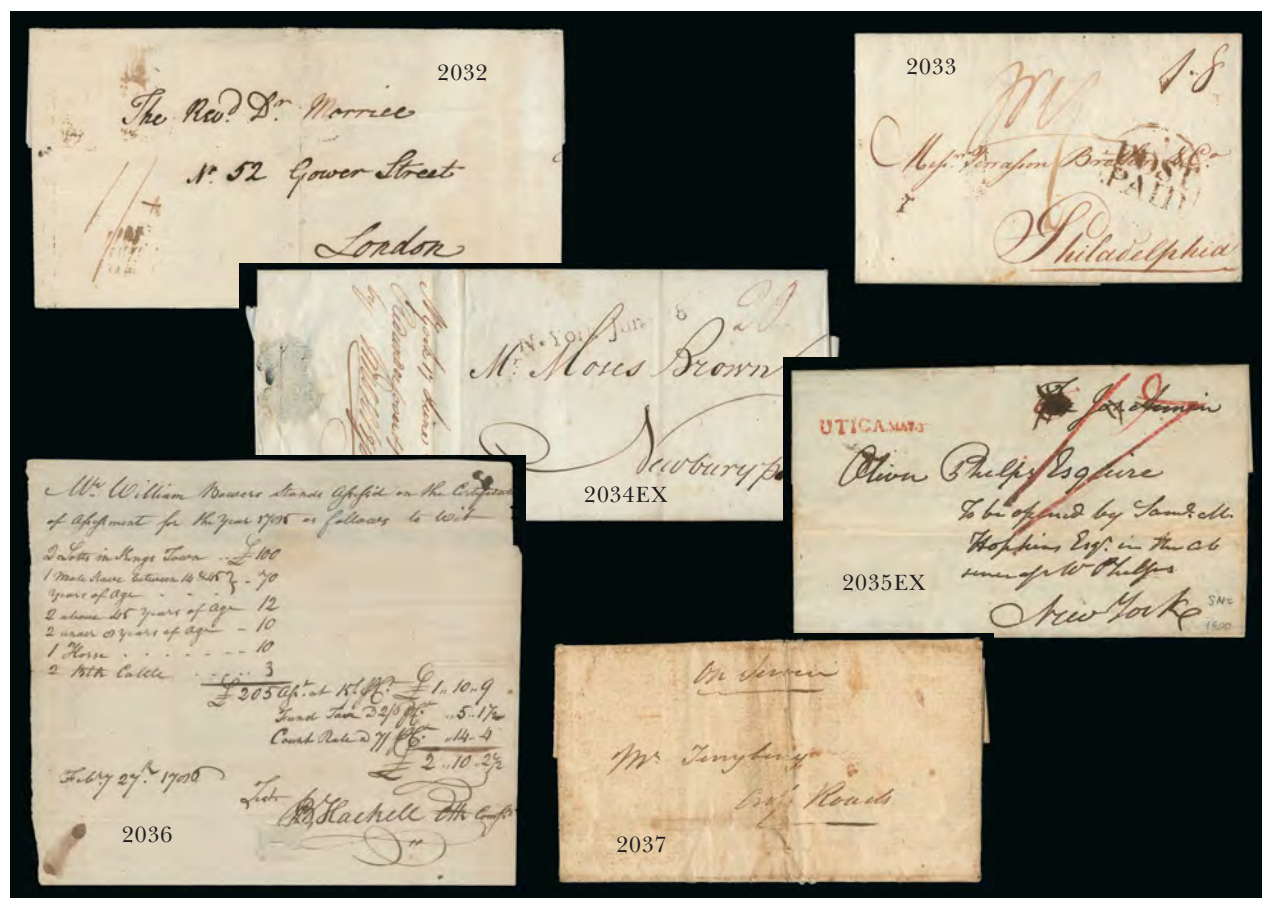 2032
The Revd. Dr. Morrice
No. 52 Gower Street
London
2033
1.8
Messrs. Terrasson Brothers & Co.
POST
PAID
Philadelphia
N. York June 8
20
Mr. Moses Brown
Newburyport
2034EX
UTICA MAY 3
Oliver Phelps Esquire
To be opened by Saml. M.
Hopkins Esqr. in the ab
sence of Mr Phelps
New York
SNC
1800
2035EX
Mr. William Bowers stands Assess'd on the Certificate
of Assessment for the Year as follows to Wit
2 Lotts in Kings Town .. £100
1 Male Slave between 14 & 45 } - 70
Years of Age
2 above 45 years of Age 12
2 under 8 years of Age - 10
1 Horse - 10
2 Cattle 3
£205 Asst. at 15/ £1..10..9
Fund Taxe @ 2/6 ..5..1½
Court Rate @ 7/ ..14..4
£2..10..2½
Febry 27th.
Hackett Clk
2036
On Service
Mr
Roads
2037